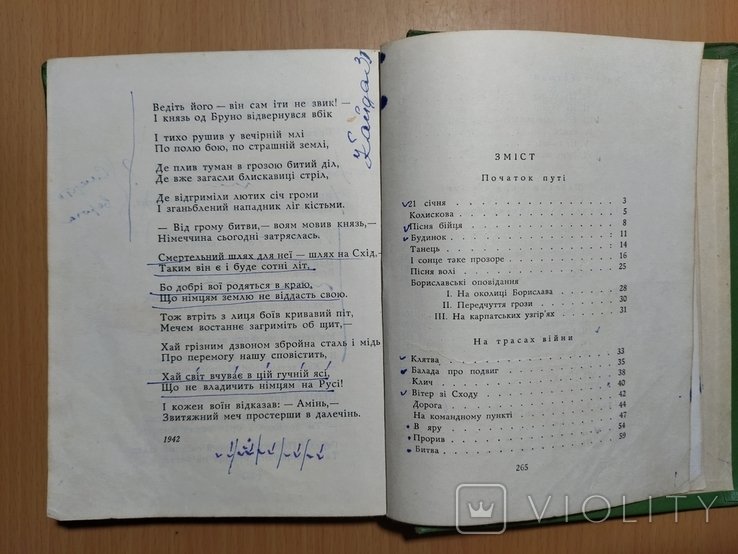 Ведіть його — він сам іти не звик! —
І князь од Бруно відвернувся вбік
І тихо рушив у вечірній млі
По полю бою, по страшній землі,
Де плив туман в грозою битий діл,
Де вже загасли блискавиці стріл,
Де відгриміли лютих січ громи
І зганьблений нападник ліг кістьми.
— Від грому битви,— воям мовив князь,—
Німеччина сьогодні затряслась.
Смертельний шлях для неї — шлях на Схід,—
Таким він є і буде сотні літ.
Бо добрі вої родяться в краю,
Що німцям землю не віддасть свою.
Тож втріть з лиця боїв кривавий піт,
Мечем востаннє загриміть об щит,—
Хай грізним дзвоном збройна сталь і мідь
Про перемогу нашу сповістить,
Хай світ вчуває в цій гучній ясі,
Що не владичить німцям на Русі!
І кожен воїн відказав: — Амінь,—
Звитяжний меч простерши в далечінь.
1942
ЗМІСТ
Початок путі
21 січня 3
Колискова 5
Пісня бійця 8
Будинок 11
Танець 14
І сонце таке прозоре 16
Пісня волі 25
Бориславські оповідання
I. На околиці Борислава 28
II. Передчуття грози 30
III. На карпатських узгір'ях 31
На трасах війни
Клятва 33
Балада про подвиг 35
Клич 38
Вітер зі Сходу 40
Дорога 42
На командному пункті 44
В яру 47
Прорив 54
Битва 59
265
VIOLITY